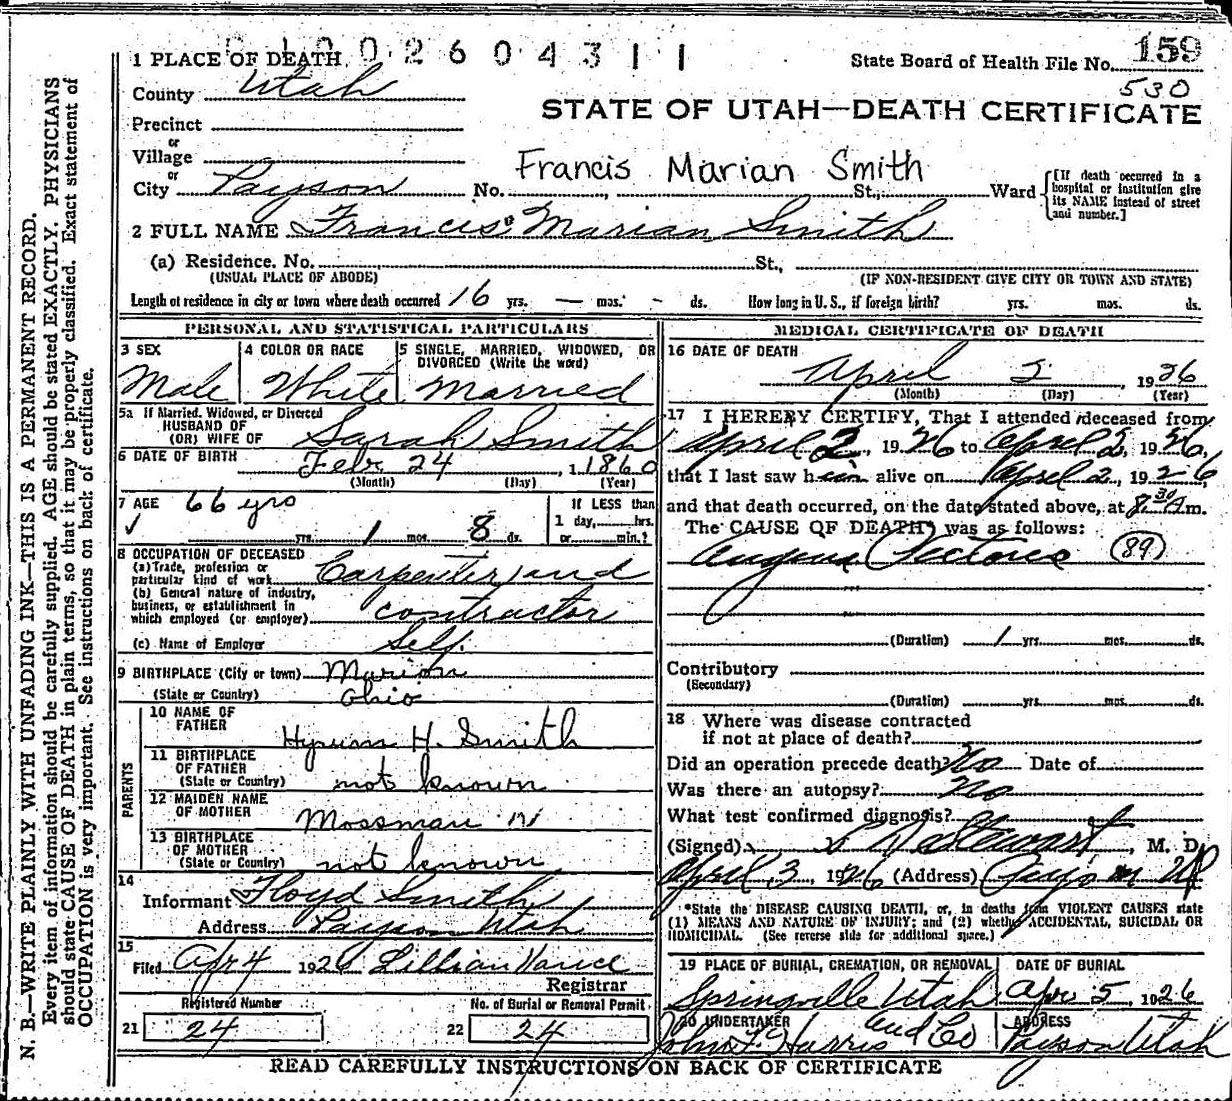 N. B.—WRITE PLAINLY WITH UNFADING INK—THIS IS A PERMANENT RECORD.
Every item of information should be carefully supplied. AGE should be stated EXACTLY. PHYSICIANS
should state CAUSE OF DEATH in plain terms, so that it may be properly classified. Exact statement of
OCCUPATION is very important. See instructions on back of certificate.
1 PLACE OF DEATH
0 0 2 6 0 4 3 1 1
State Board of Health File No. 159
530
County Utah
STATE OF UTAH—DEATH CERTIFICATE
Precinct
or
Village
or
Francis Marian Smith
City Payson No. St., Ward
[If death occurred in a
hospital or institution give
its NAME instead of street
and number.]
2 FULL NAME Francis Marian Smith
(a) Residence. No. St.,
(USUAL PLACE OF ABODE) (IF NON-RESIDENT GIVE CITY OR TOWN AND STATE)
Length of residence in city or town where death occurred 16 yrs. — mos. - ds. How long in U. S., if foreign birth? yrs. mos. ds.
PERSONAL AND STATISTICAL PARTICULARS
3 SEX
Male
4 COLOR OR RACE
White
5 SINGLE, MARRIED, WIDOWED, OR
DIVORCED (Write the word)
Married
5a If Married, Widowed, or Divorced
HUSBAND OF
(OR) WIFE OF Sarah Smith
6 DATE OF BIRTH Feb 24, 1 1860
(Month) (Day) (Year)
7 AGE 66 yrs
yrs. 1 mos. 8 ds.
If LESS than
1 day, hrs.
or min.?
8 OCCUPATION OF DECEASED
(a) Trade, profession or
particular kind of work Carpenter and
(b) General nature of industry,
business, or establishment in
which employed (or employer) contractor
(c) Name of Employer Self.
9 BIRTHPLACE (City or town) Marion
(State or Country) Ohio
PARENTS
10 NAME OF
FATHER Hyrum H. Smith
11 BIRTHPLACE
OF FATHER
(State or Country) not known
12 MAIDEN NAME
OF MOTHER Mossman
13 BIRTHPLACE
OF MOTHER
(State or Country) not known
14
Informant Floyd Smith
Address Payson Utah
15
Filed Apr 4 1926 Lillian Vance
Registrar
Registered Number
21 24
No. of Burial or Removal Permit
22 24
MEDICAL CERTIFICATE OF DEATH
16 DATE OF DEATH
April 2, 1926
(Month) (Day) (Year)
17 I HEREBY CERTIFY, That I attended deceased from
April 2, 1926 to April 2, 1926,
that I last saw him alive on April 2, 1926
and that death occurred, on the date stated above, at 8 30 A m.
The CAUSE OF DEATH was as follows:
Angina Pectoris (89)
(Duration) 1 yrs. mos. ds.
Contributory
(Secondary)
(Duration) yrs. mos. ds.
18 Where was disease contracted
if not at place of death?
Did an operation precede death? No Date of
Was there an autopsy? No
What test confirmed diagnosis?
(Signed) Stewart, M. D.
April 3, 1926 (Address) Payson Ut
*State the DISEASE CAUSING DEATH, or, in deaths from VIOLENT CAUSES state
(1) MEANS AND NATURE OF INJURY; and (2) whether ACCIDENTAL, SUICIDAL OR
HOMICIDAL. (See reverse side for additional space.)
19 PLACE OF BURIAL, CREMATION, OR REMOVAL
Springville Utah
DATE OF BURIAL
Apr 5, 1926
20 UNDERTAKER
John F. Harris and Co
ADDRESS
Payson Utah
READ CAREFULLY INSTRUCTIONS ON BACK OF CERTIFICATE